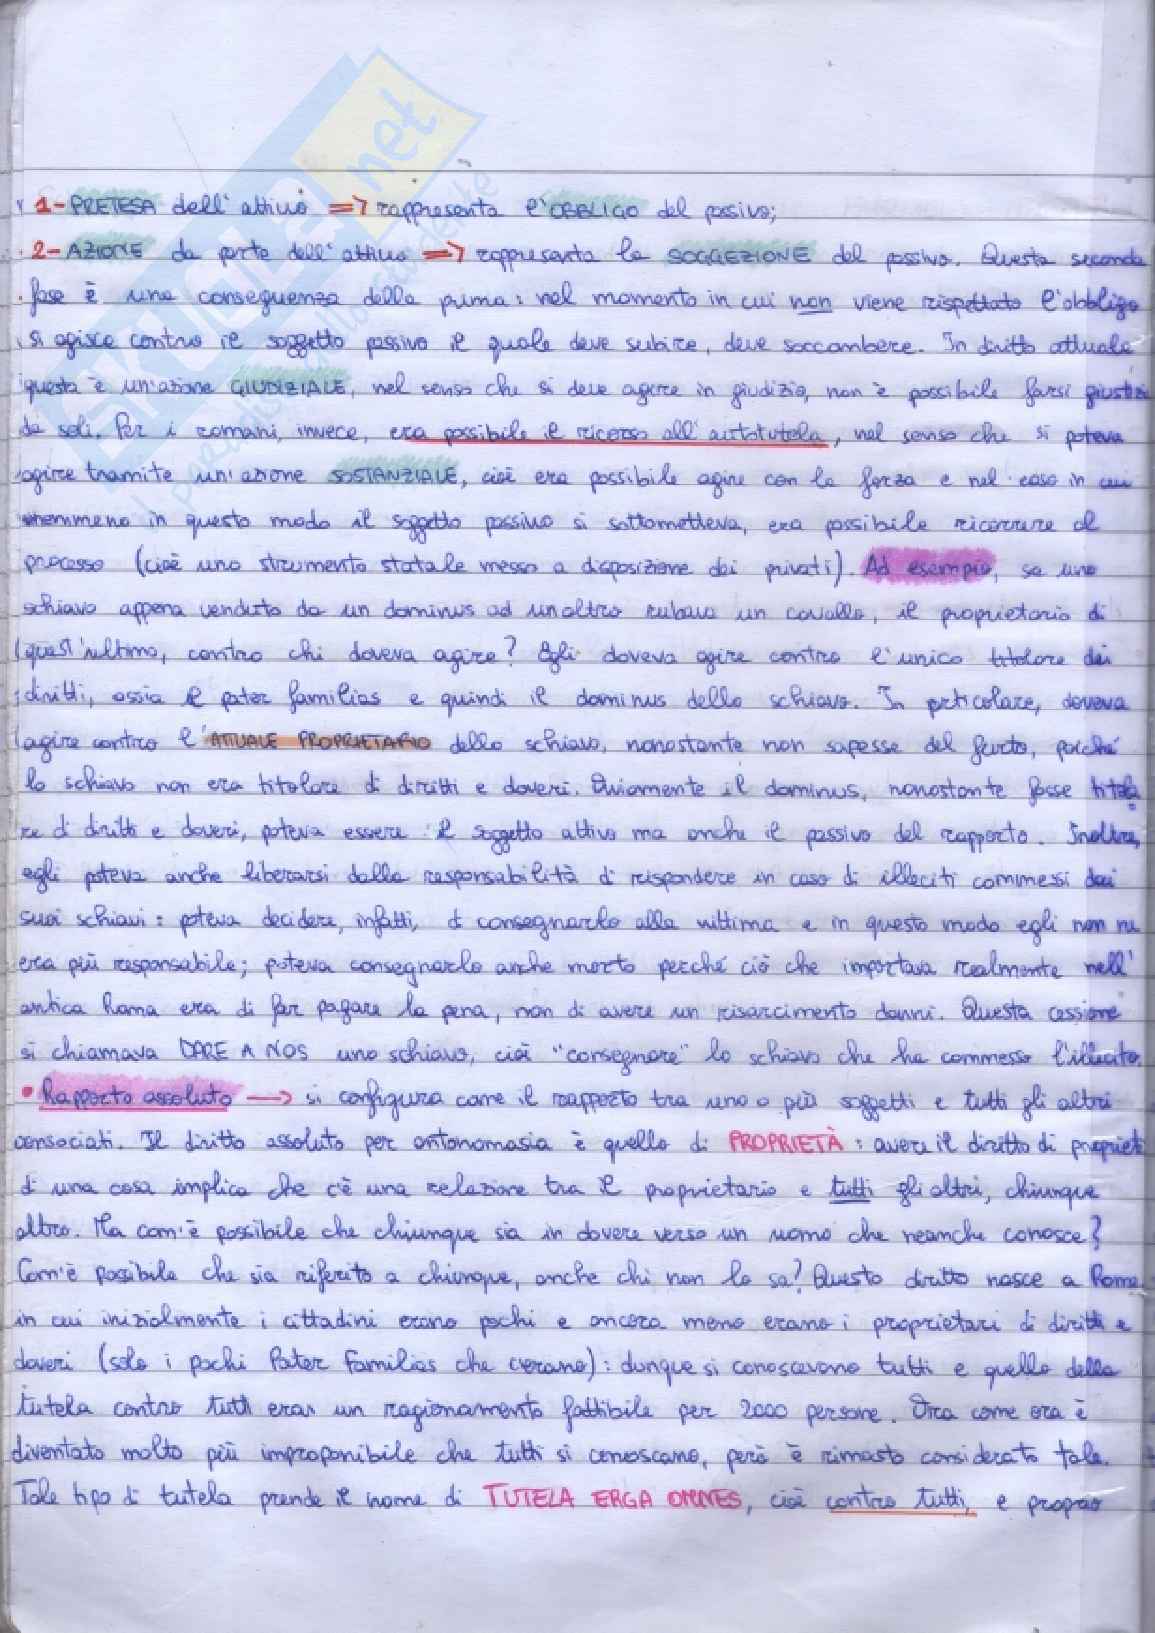 SKUOLA.net
1- PRETESA dell'attivo => rappresenta l'OBBLIGO del passivo;
2- AZIONE da parte dell'attivo => rappresenta la SOGGEZIONE del passivo. Questa seconda
fase è una conseguenza della prima: nel momento in cui non viene rispettato l'obbligo
si agisce contro il soggetto passivo il quale deve subire, deve soccombere. In diritto attuale
questa è un'azione GIUDIZIALE, nel senso che si deve agire in giudizio, non è possibile farsi giustizia
da soli. Per i romani, invece, era possibile il ricorso all'autotutela, nel senso che si poteva
agire tramite un'azione SOSTANZIALE, cioè era possibile agire con la forza e nel caso in cui
nemmeno in questo modo il soggetto passivo si sottometteva, era possibile ricorrere al
processo (cioè uno strumento statale messo a disposizione dei privati). Ad esempio, se uno
schiavo appena venduto da un dominus ad un altro rubava un cavallo, il proprietario di
quest'ultimo, contro chi doveva agire? Egli doveva agire contro l'unico titolare dei
diritti, ossia il pater familias e quindi il dominus dello schiavo. In prticolare, doveva
agire contro l'ATTUALE PROPRIETARIO dello schiavo, nonostante non sapesse del furto, poiché
lo schiavo non era titolare di diritti e doveri. Ovviamente il dominus, nonostante fosse titola
re di diritti e doveri, poteva essere il soggetto attivo ma anche il passivo del rapporto. Inoltre,
egli poteva anche liberarsi dalla responsabilità di rispondere in caso di illeciti commessi dai
suoi schiavi: poteva decidere, infatti, di consegnarlo alla vittima e in questo modo egli non ne
era più responsabile; poteva consegnarlo anche morto perché ciò che importava realmente nell'
antica Roma era di far pagare la pena, non di avere un risarcimento danni. Questa cessione
si chiamava DARE A NOS uno schiavo, cioè "consegnare" lo schiavo che ha commesso l'illecito.
• Rapporto assoluto → si configura come il rapporto tra uno o più soggetti e tutti gli altri
consociati. Il diritto assoluto per antonomasia è quello di PROPRIETÀ: avere il diritto di propriet
di una cosa implica che c'è una relazione tra il proprietario e tutti gli altri, chiunque
altro. Ma com'è possibile che chiunque sia in dovere verso un uomo che neanche conosce?
Com'è possibile che sia riferito a chiunque, anche chi non lo sa? Questo diritto nasce a Roma
in cui inizialmente i cittadini erano pochi e ancora meno erano i proprietari di diritti e
doveri (solo i pochi Pater Familias che c'erano): dunque si conoscevano tutti e quello della
tutela contro tutti era un ragionamento fattibile per 2000 persone. Ora come ora è
diventato molto più improponibile che tutti si conoscano, però è rimasto considerato tale.
Tale tipo di tutela prende il nome di TUTELA ERGA OMNES, cioè contro tutti, e proprio